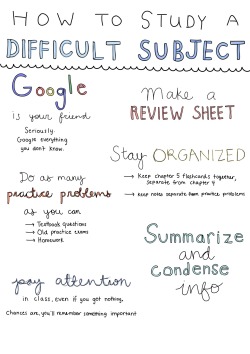 HOW TO STUDY A
DIFFICULT SUBJECT
Google
is your friend
Seriously.
Google everything
you don't know.
Make a
REVIEW SHEET
Stay ORGANIZED
→ Keep chapter 5 flashcards together,
separate from chapter 4
→ keep notes separate from practice problems
Do as many
practice problems
as you can
→ Textbook questions
→ Old practice exams
→ Homework
Summarize
and
Condense
info
pay attention
in class, even if you get nothing,
Chances are, you'll remember something important